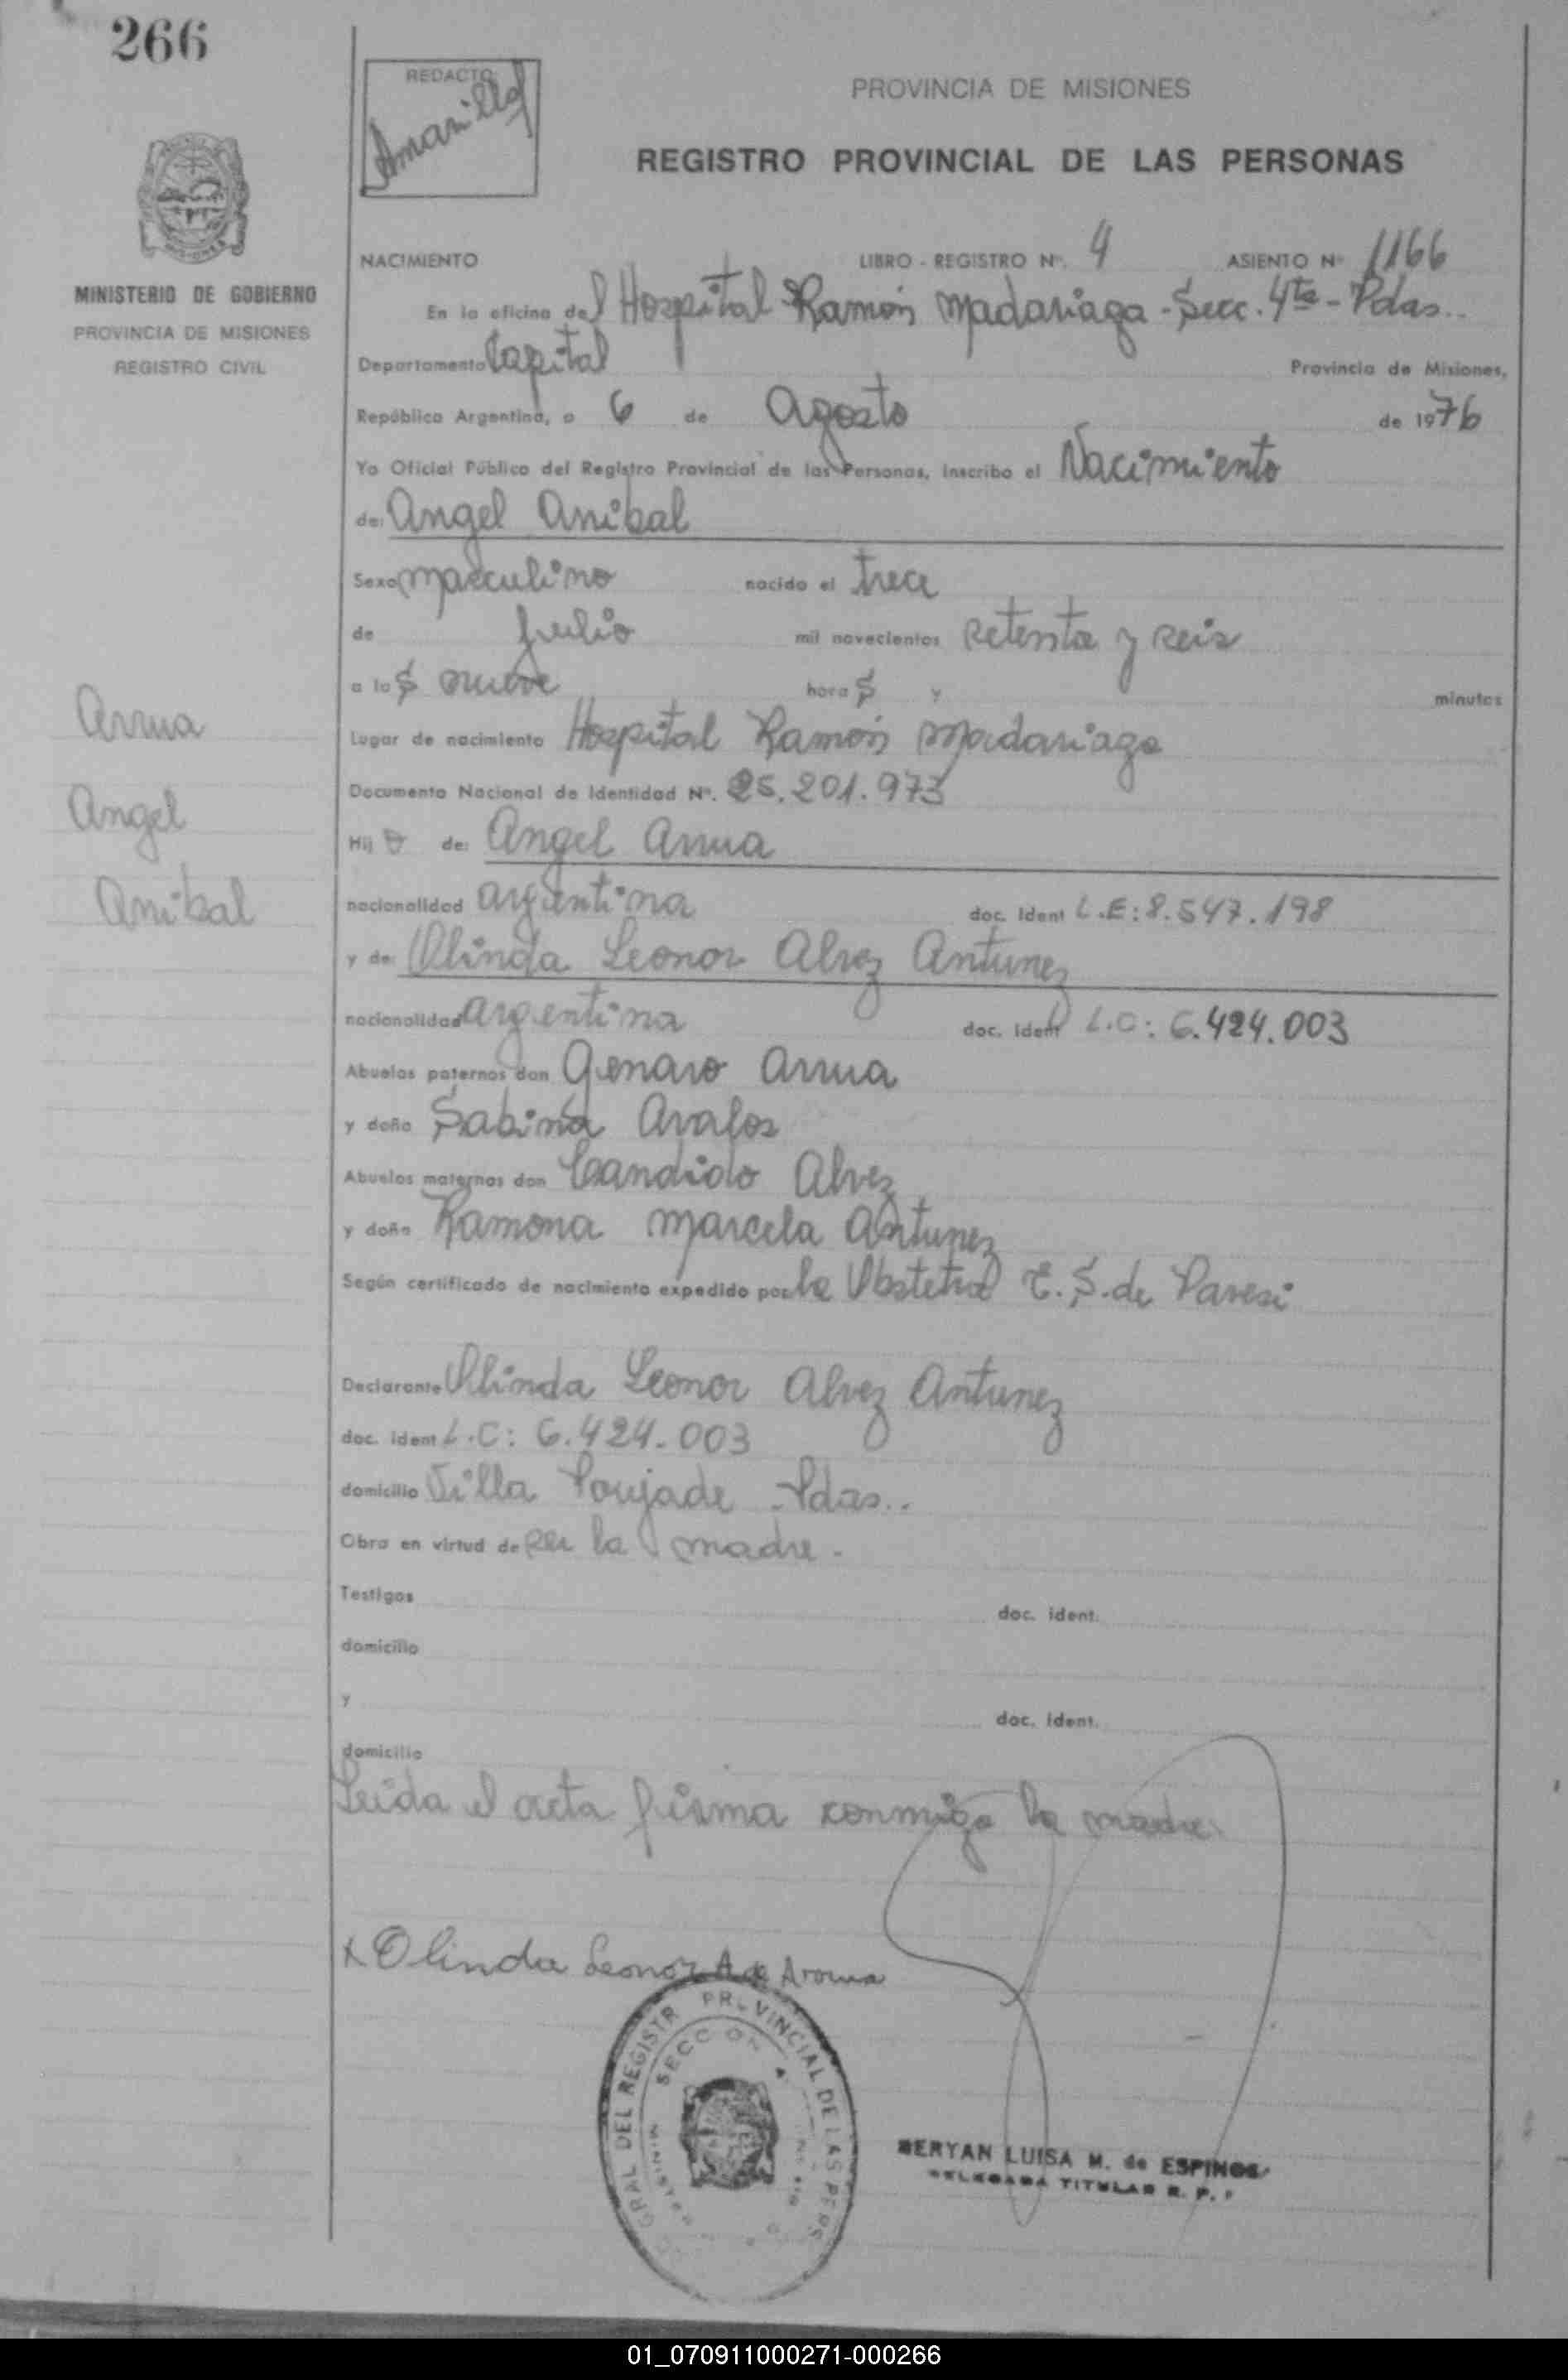 266
REDACTO
Amarilla
PROVINCIA DE MISIONES
REGISTRO PROVINCIAL DE LAS PERSONAS
MINISTERIO DE GOBIERNO
PROVINCIA DE MISIONES
REGISTRO CIVIL
NACIMIENTO LIBRO - REGISTRO Nº. 4 ASIENTO Nº 1166
En la oficina del Hospital Ramón Madariaga - Secc. 4ta - Pdas..
Departamento Capital Provincia de Misiones,
República Argentina, a 6 de Agosto de 1976
Yo Oficial Público del Registro Provincial de las Personas, inscribo el Nacimiento
de: Angel Anibal
Sexo masculino nacido el trece
de Julio mil novecientos setenta y seis
a las nueve horas y minutos
Lugar de nacimiento Hospital Ramón Madariaga
Documento Nacional de Identidad Nº. 25.201.973
Hijo de: Angel Arrua
nacionalidad argentina doc. Ident L.E: 8.547.198
y de: Olinda Leonor Alvez Antunez
nacionalidad argentina doc. Ident L.C: 6.424.003
Abuelos paternos don Genaro Arrua
y doña Sabina Avalos
Abuelos maternos don Candido Alvez
y doña Ramona Marcela Antunez
Según certificado de nacimiento expedido por la Obstetra E. S. de Paresi
Declarante Olinda Leonor Alvez Antunez
doc. ident L.C: 6.424.003
domicilio Villa Poujade - Pdas..
Obra en virtud de ser la madre.
Testigos doc. ident.
domicilio
y doc. ident.
domicilio
Leida el acta firma conmigo la madre.
Arrua
Angel
Anibal
x Olinda Leonor A de Arrua
GRAL DEL REGISTR PROVINCIAL DE LAS PERS
SECCION 4
MERYAN LUISA M. de ESPINOS
DELEGADA TITULAR R. P. P
01_070911000271-000266